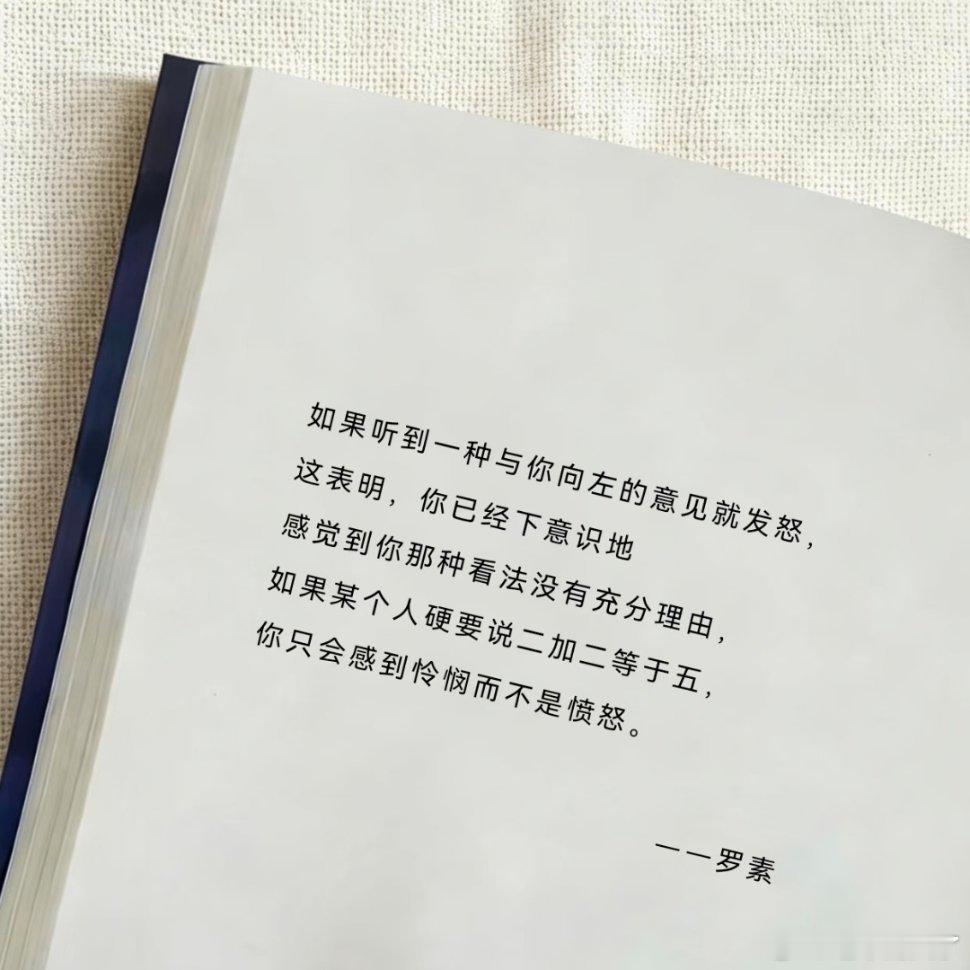 如果听到一种与你向左的意见就发怒，
这表明，你已经下意识地
感觉到你那种看法没有充分理由，
如果某个人硬要说二加二等于五，
你只会感到怜悯而不是愤怒。
一一罗素